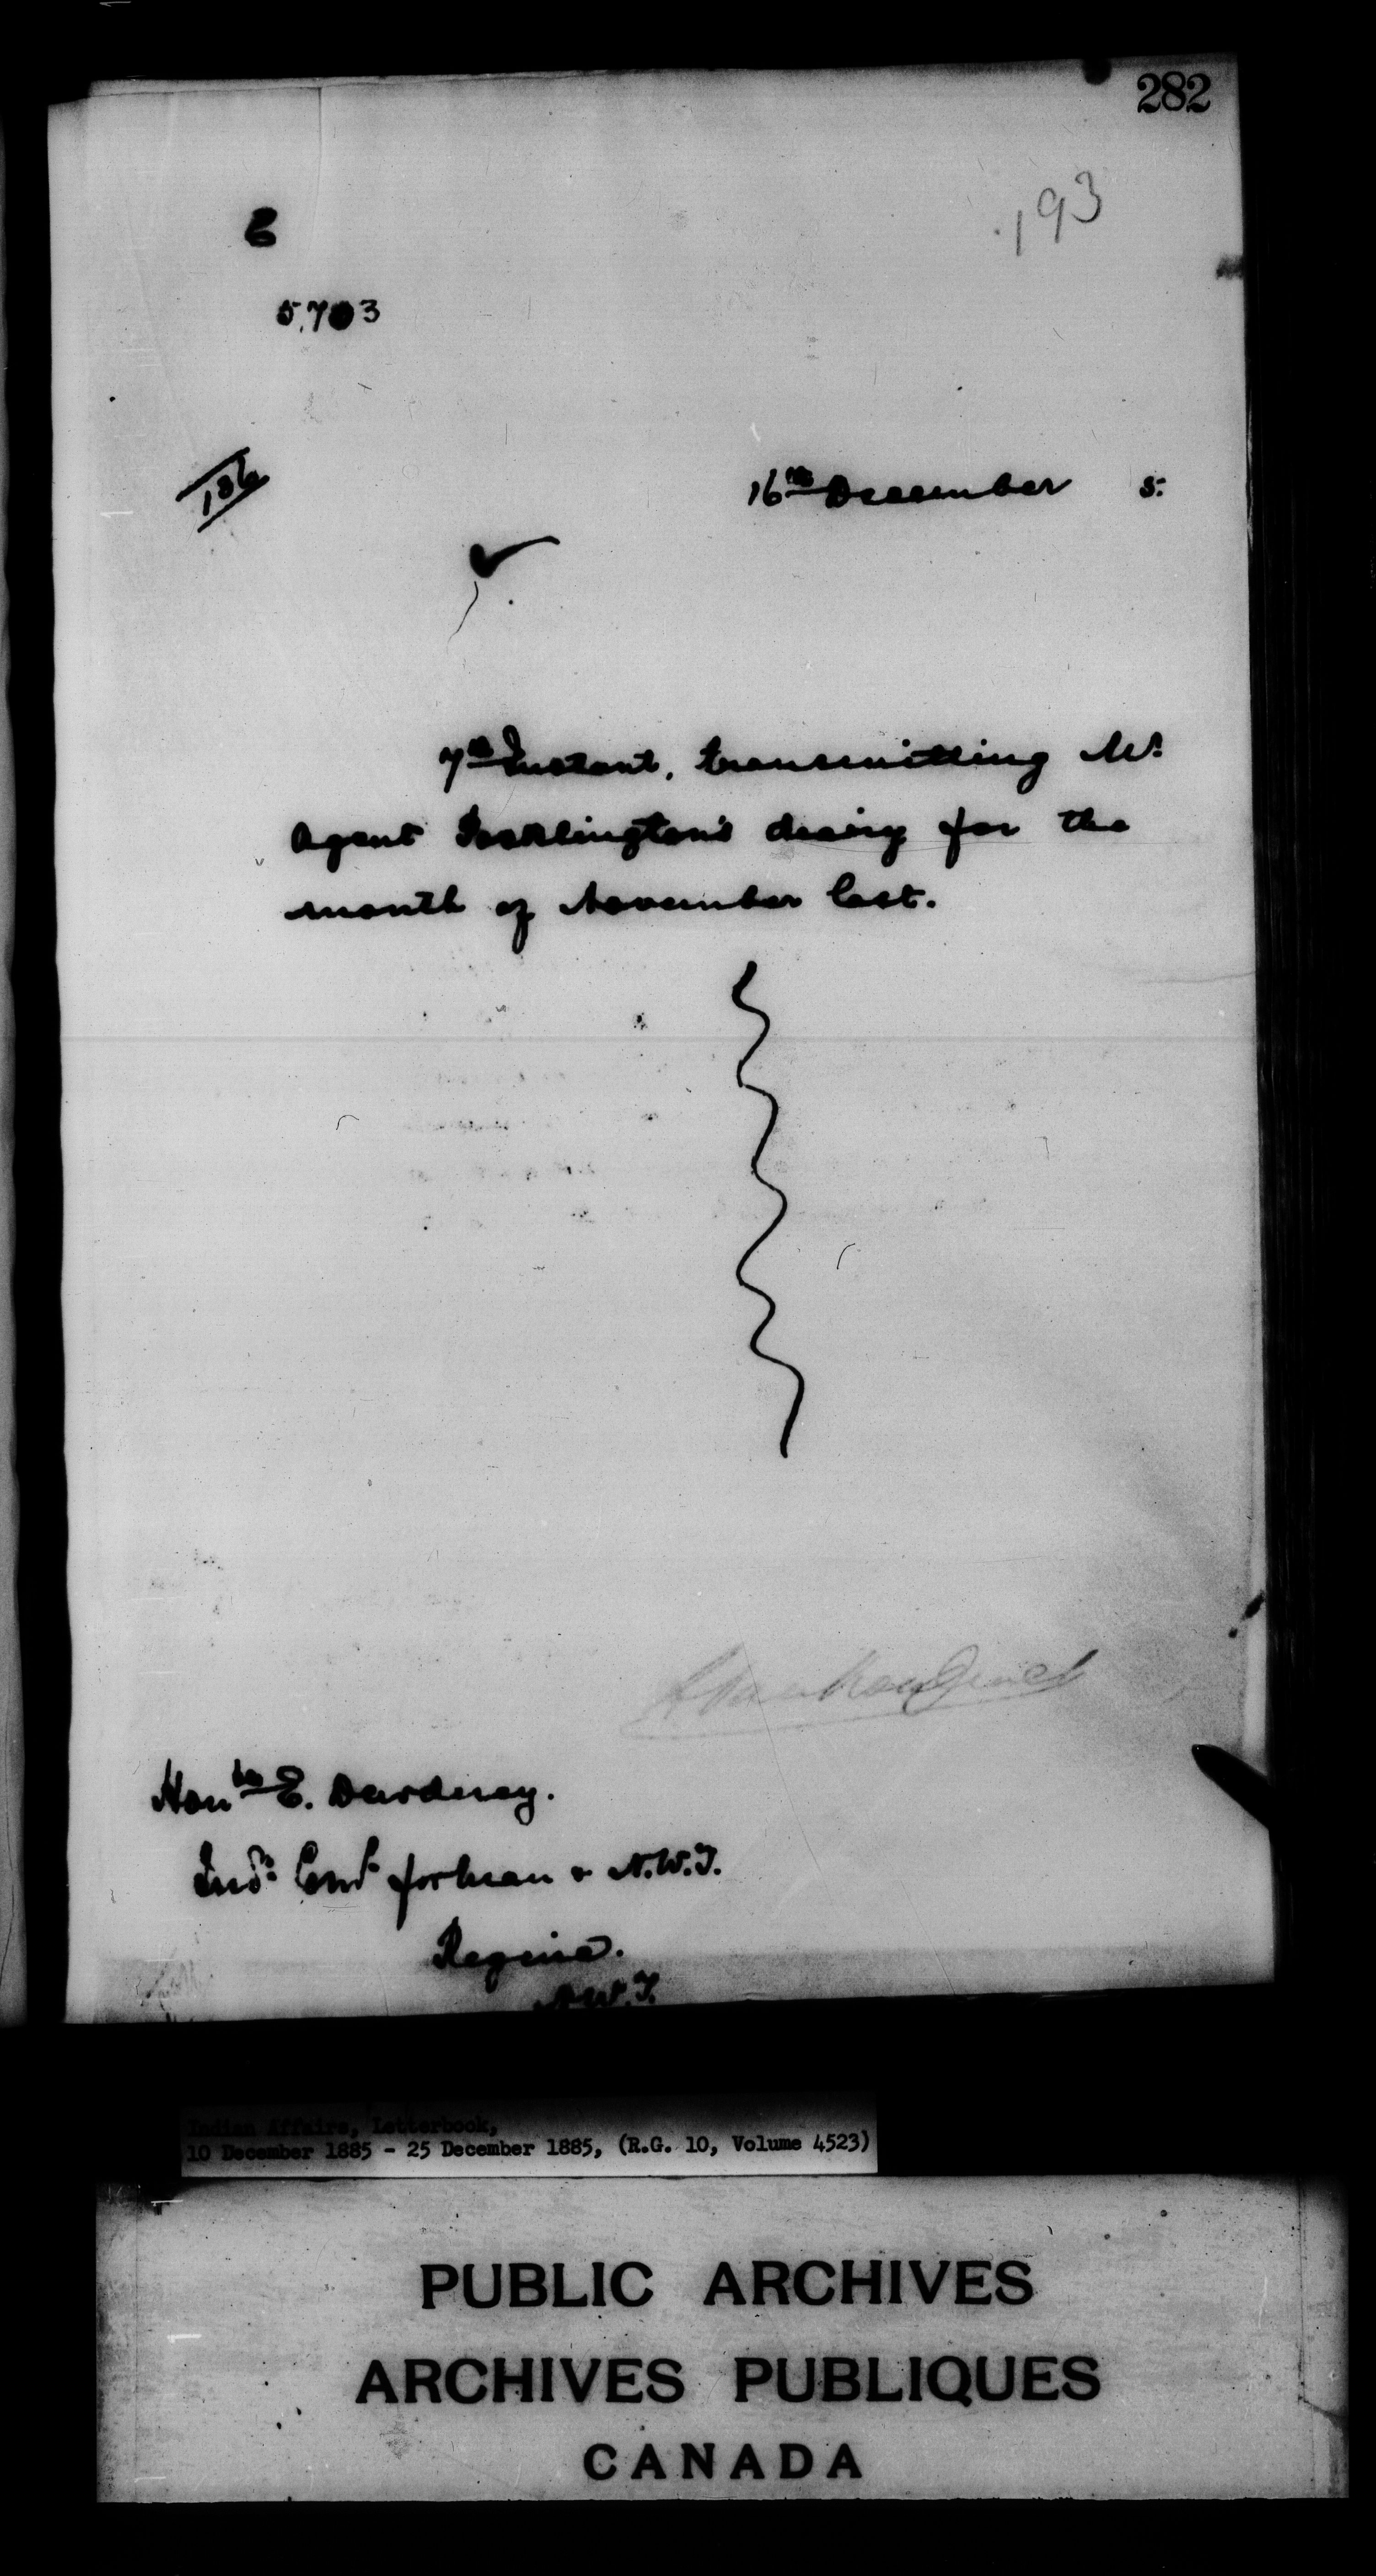 282
193
E
5,703
186
16th December 5.
7th Instant, transmitting Mr.
Agent Pocklington's diary for the
month of November last.
L. Vankoughnet
Honble E. Dewdney.
Ind. Comr for Man & N.W.T.
Regina.
N.W.T.
Indian Affairs, Letterbook,
10 December 1885 - 25 December 1885, (R.G. 10, Volume 4523)
PUBLIC ARCHIVES
ARCHIVES PUBLIQUES
CANADA